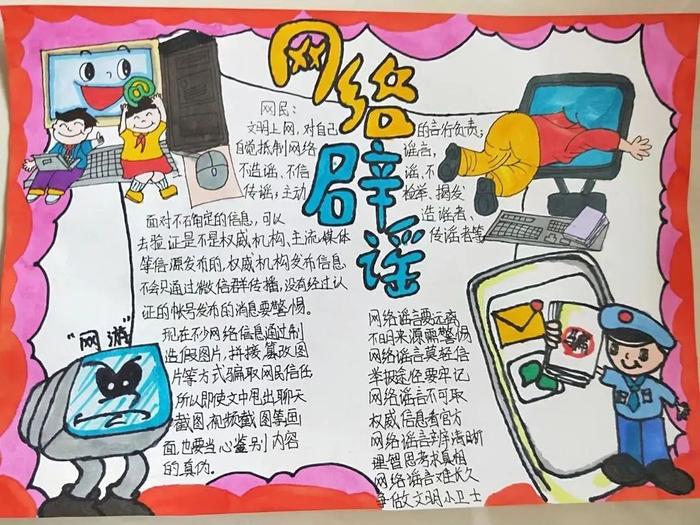 网络辟谣
网民：
文明上网，对自己的言行负责；
自觉抵制网络谣言，
不造谣、不信谣、不
传谣；主动检举、揭发
造谣者、
传谣者等
面对不确定的信息，可以
去验证是不是权威机构、主流媒体
等信源发布的，权威机构发布信息
不会只通过微信群传播，没有经过认
证的帐号发布的消息要警惕。
"网游"
现在不少网络信息通过制
造假图片，拼接篡改图
片等方式骗取网民信任
所以即使文中甩出聊天
截图，视频截图等画
面，也要当心鉴别内容
的真伪。
网络谣言要远离
不明来源需警惕
网络谣言莫轻信
举报途径要牢记
网络谣言不可取
权威信息看官方
网络谣言辨清晰
理智思考求真相
网络谣言难长久
争做文明小卫士
骗
@